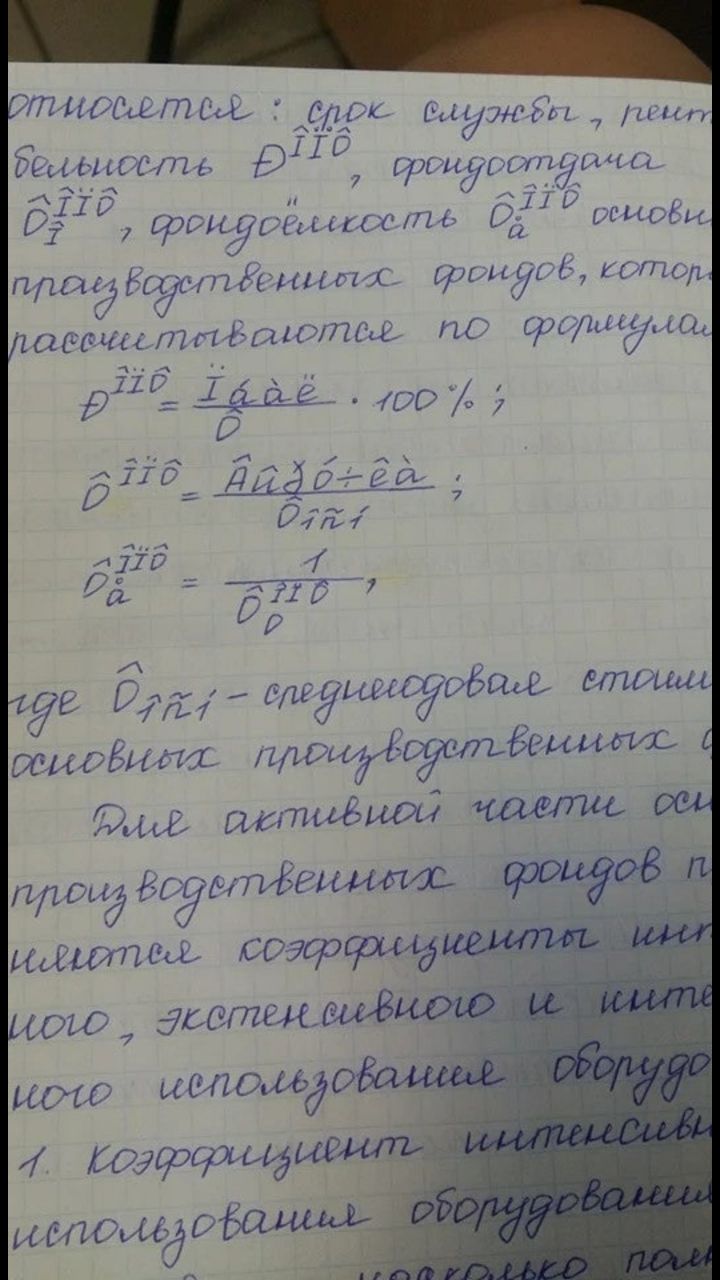 относятся: срок службы, рент
бельность Ð^ÎÏÔ, фондоотдача
Ô_Î^ÎÏÔ, фондоёмкость Ô_å^ÎÏÔ основн
производственных фондов, котор
рассчитываются по формулам
Ð^ÎÏÔ = Ïáàë / Ô · 100%;
Ô^ÎÏÔ = Âûðó÷êà / Ôîñí ;
Ô_å^ÎÏÔ = 1 / Ô_D^ÎÏÔ ,
где Ôîñí – среднегодовая стоим
основных производственных ф
Для активной части осн
производственных фондов п
няются коэффициенты инт
ного, экстенсивного и инте
ного использования оборудо
1. Коэффициент интенсивн
использования оборудования
насколько полн